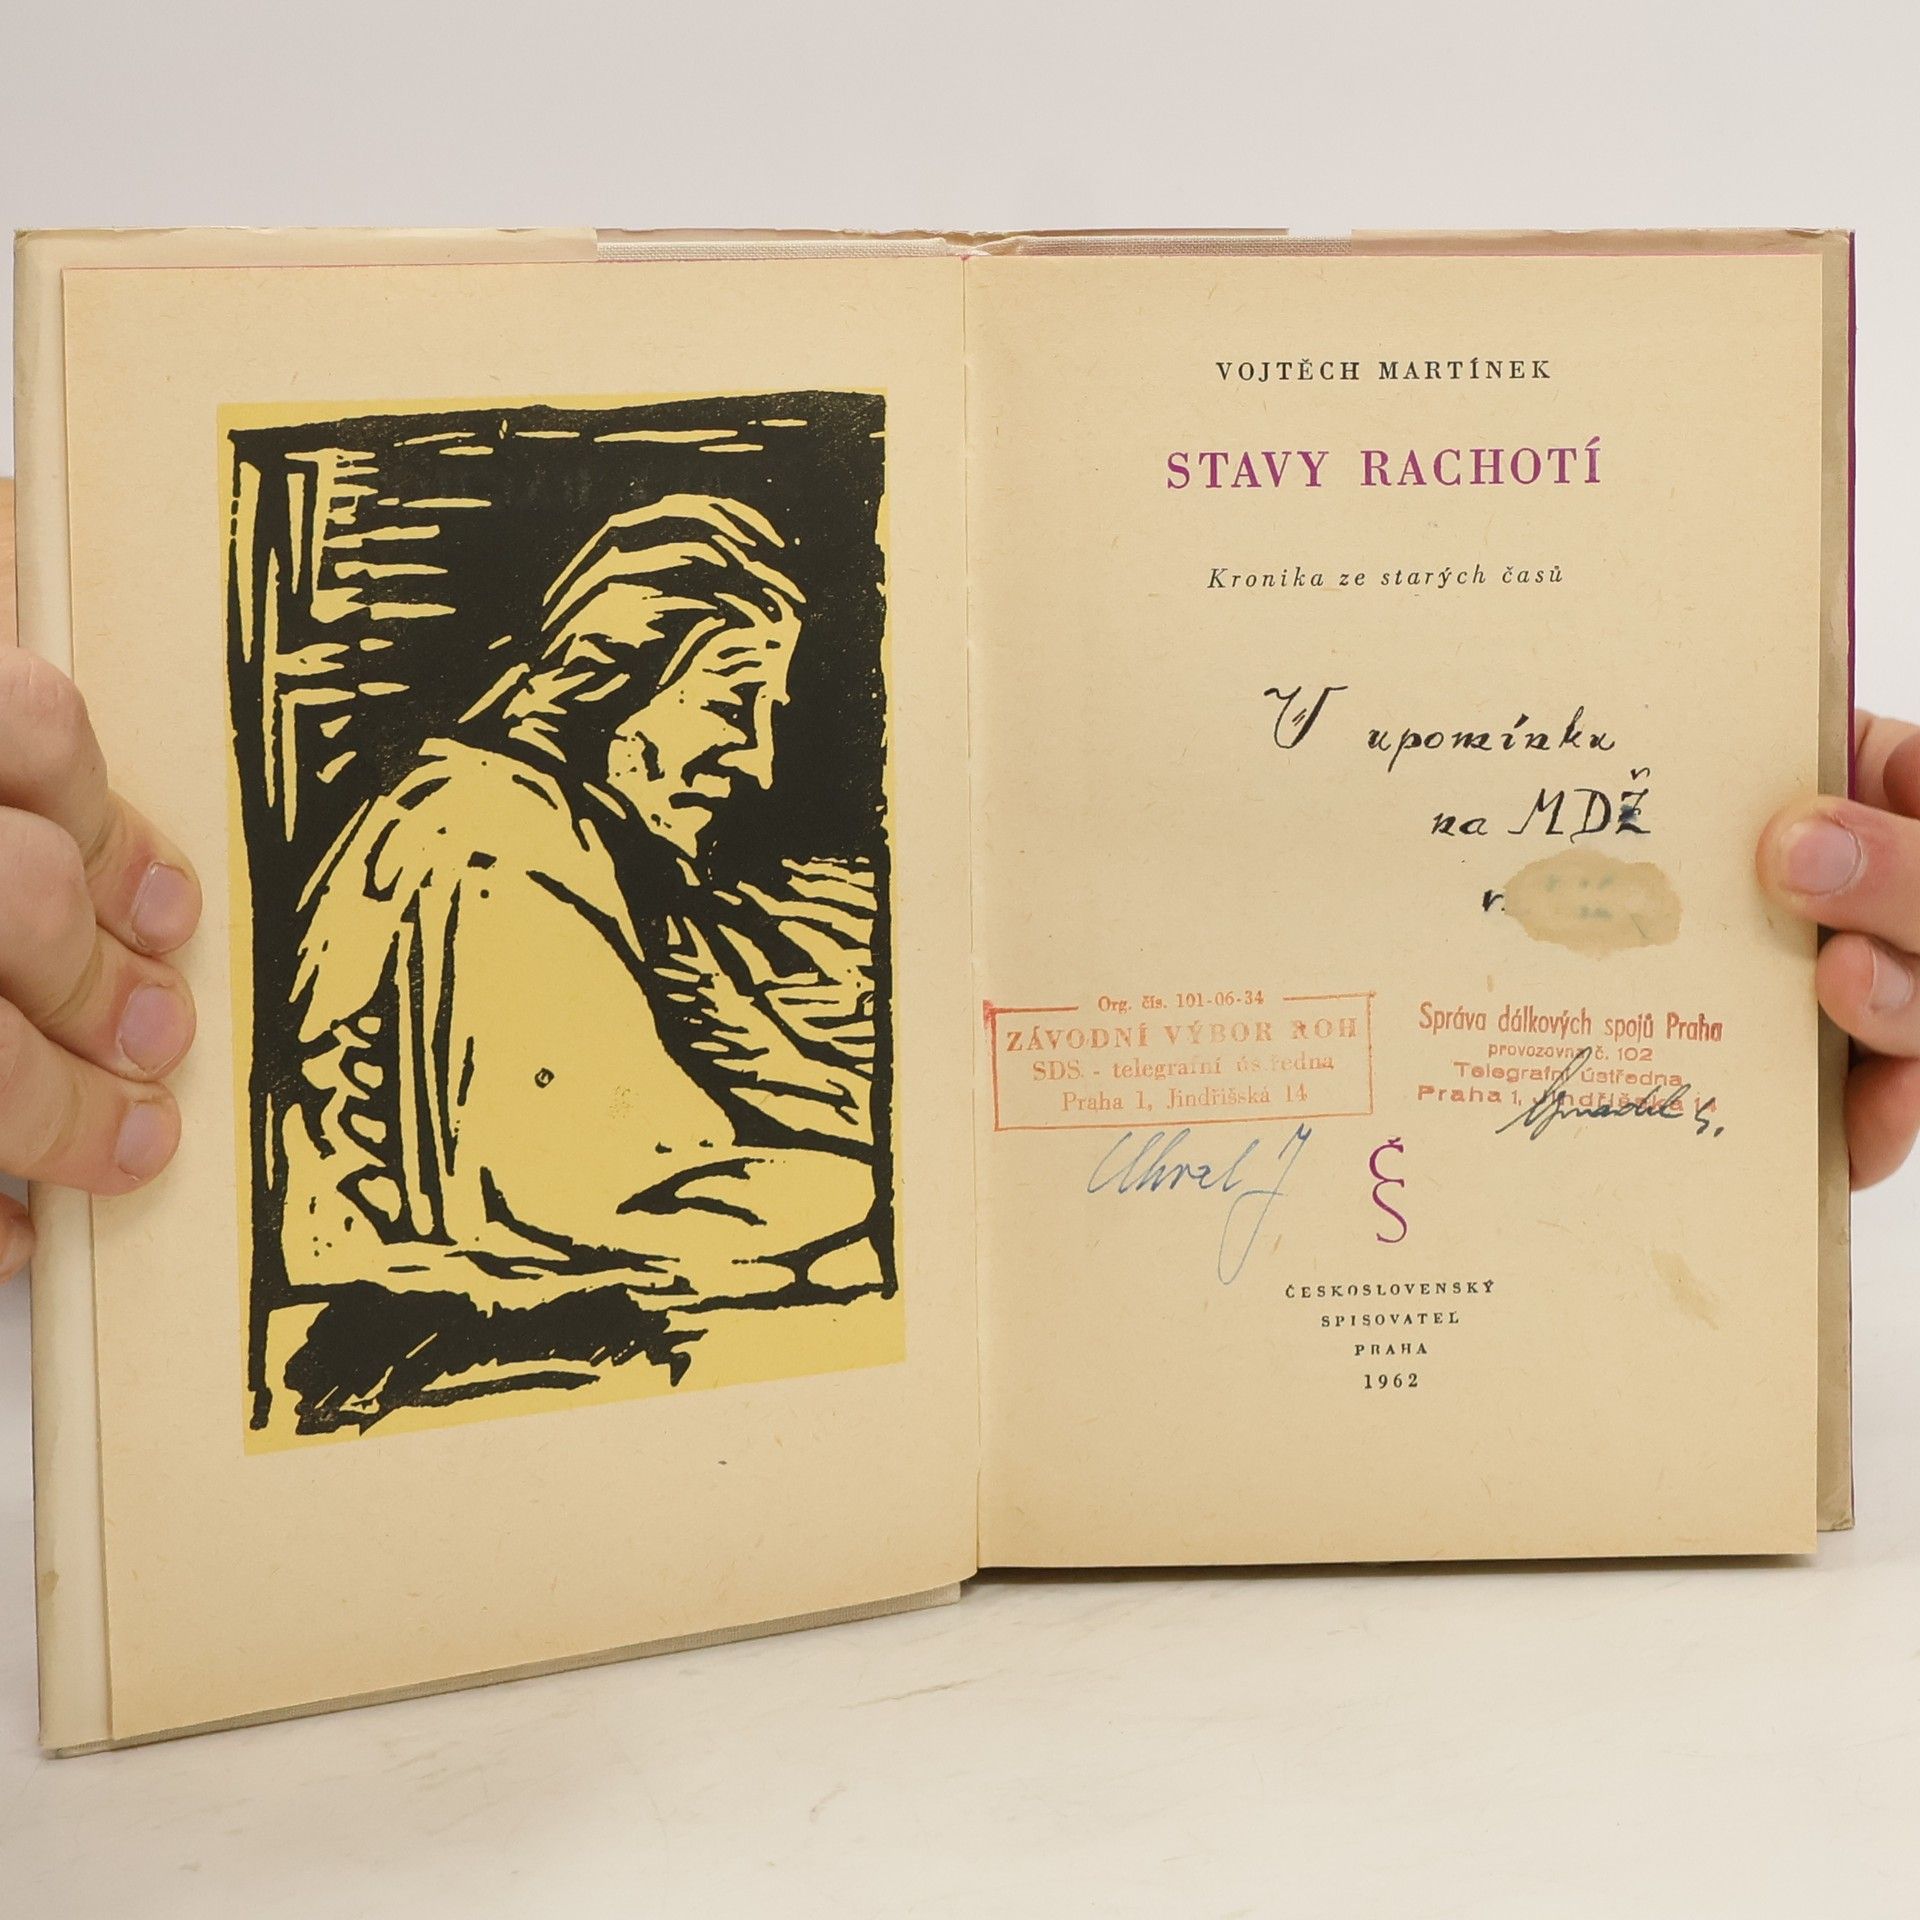 VOJTĚCH MARTÍNEK
STAVY RACHOTÍ
Kronika ze starých časů
V upomínku
na MDŽ
r.
Org. čís. 101-06-34
ZÁVODNÍ VÝBOR ROH
SDS - telegrafní ústředna
Praha 1, Jindřišská 14
Správa dálkových spojů Praha
provozovna č. 102
Telegrafní ústředna
Praha 1, Jindřišská 14
ČS
ČESKOSLOVENSKÝ
SPISOVATEL
PRAHA
1962